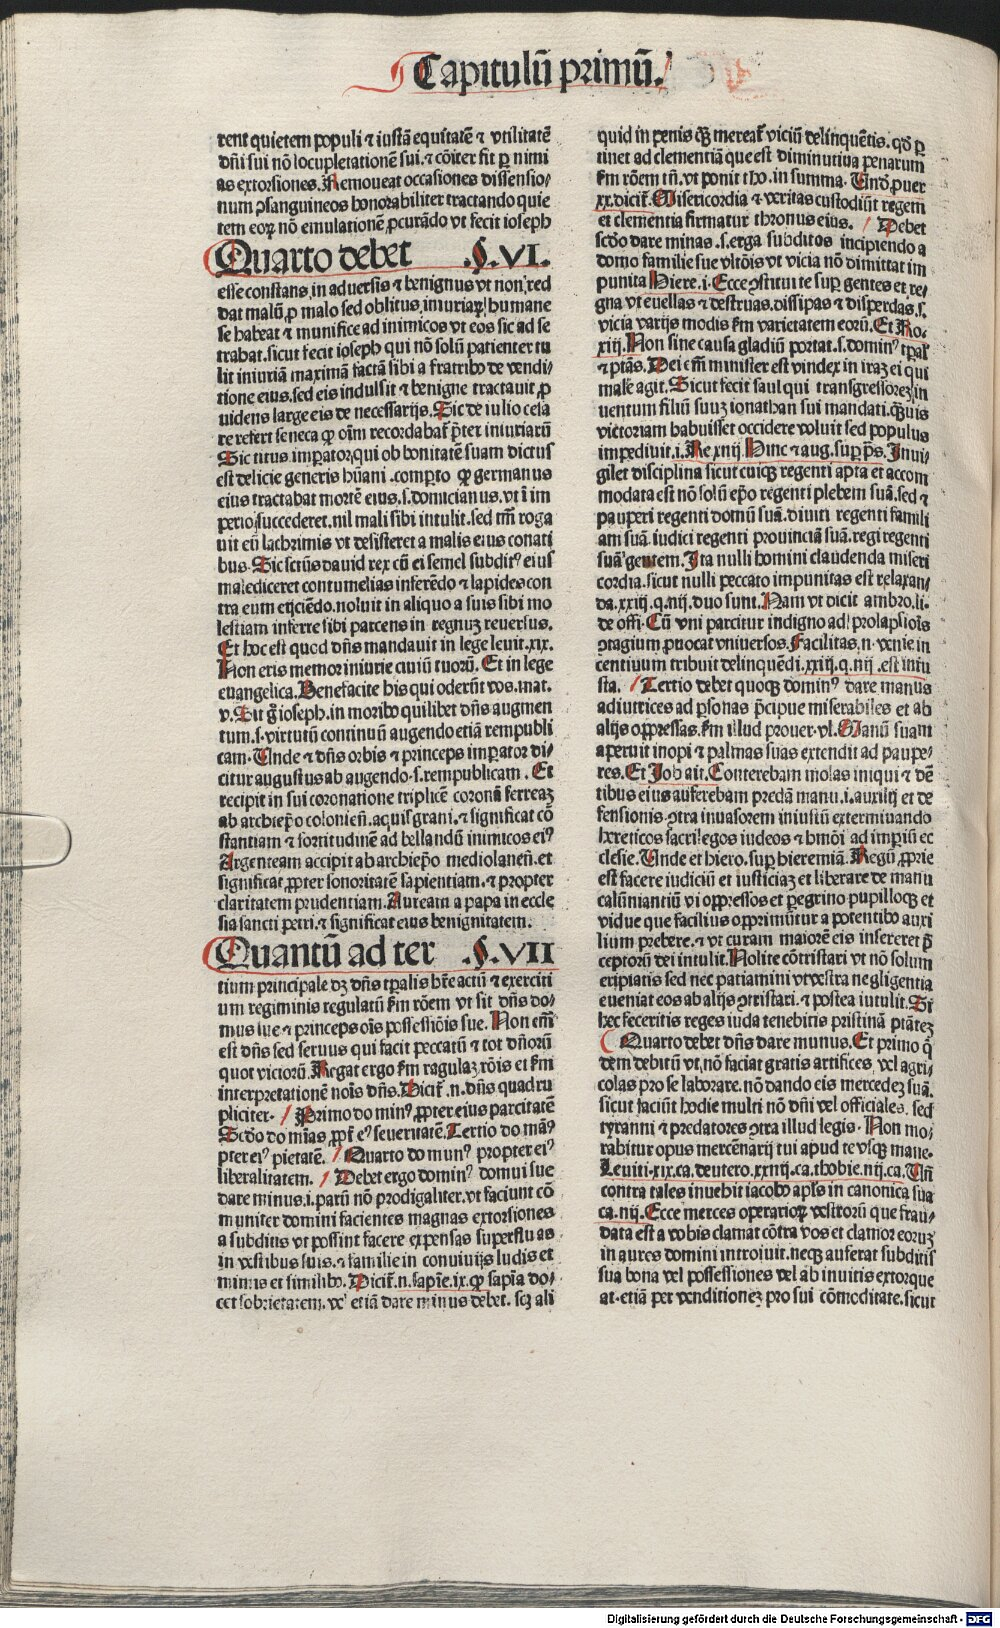 Capitulū primū.
rent quietem populi ⁊ iustā equitatē ⁊ vtilitatē
dñi sui nō locupletationē sui.⁊ cōiter fit ꝑ nimi
as extorsiones.Remoueat occasiones dissensio⸗
num ꝯsanguineos honorabiliter tractando quie
tem eoꝝ nō emulationē ꝓcurādo vt fecit ioseph
Quarto debet .§.VI.
esse constans, in aduersis ⁊ benignus vt non red
dat malū ꝓ malo sed oblitus iniuriaꝝ humane
se habeat ⁊ munifice ad inimicos vt eos sic ad se
trahat.sicut fecit ioseph qui nō solū patienter tu
lit iniuriā maximā factā sibi a fratribꝰ de vendi⸗
tione eius.sed eis indulsit ⁊ benigne tractauit ꝓ
uidens large eis de necessarijs.Sic de iulio cesa
re refert seneca ꝙ oīm recordabat᷑ p̄ter iniuriarū
Sic titus imꝑator,qui ob bonitatē suam dictus
est delicie generis hūani .comꝑto ꝙ germanus
eius tractabat mortē eius.s.domicianus.vt ī im
perio succederet.nil mali sibi intulit.sed tm̄ roga
uit eū lachrimis vt desisteret a malis eius conati
bus.Sic sctūs dauid rex cū ei semel subditꝰ eius
malediceret contumelias inferēdo ⁊ lapides con
tra eum eijciēdo.noluit in aliquo a suis sibi mo
lestiam inferre sibi parcens in regnuꝫ reuersus.
Et hoc est quod dñs mandauit in lege leuit.xix.
Non eris memor iniurie ciuiū tuorū. Et in lege
euangelica.Benefacite his qui oderūt vos.mat.
v.Sit g̊ ioseph.in moribꝰ quilibet dñs augmen
tum.s.virtutū continuū augendo etiā rempubli
cam.Unde ⁊ dñs orbis ⁊ princeps imꝑator di⸗
citur augustus ab augendo.s.rempublicam. Et
recipit in sui coronatione triplicē coronā ferreaꝫ
ab archiep̄o colonien̄.aquisgrani.⁊ significat cō
stantiam ⁊ fortitudinē ad bellandū inimicos eiꝰ
Argenteam accipit ab archiep̄o mediolanen̄.et
significat ꝓpter sonoritatē sapientiam.⁊ propter
claritatem prudentiam.Auream a papa in eccle
sia sancti petri.⁊ significat eius benignitatem.
Quantū ad ter .§.VII
tium principale dꝫ dñs tꝑalis hr̄e actū ⁊ exerciti
um regiminis regulatū ẜm rōem vt sit dñs do⸗
mus sue ⁊ princeps oīs possessiōis sue. Non em̄
est dñs sed seruus qui facit peccatū ⁊ tot dñorū
quot viciorū.Regat ergo ẜm ragulaꝫ rōis et ẜm
interpretationē noīs dñs.Dicit᷑.n.dñs quadru
pliciter. Primo do minꝰ ꝓpter eius parcitatē
Scd̄o do mīas ꝓpt᷑ eꝰ seueritatē.Tertio do māꝰ
pter eiꝰ pietatē. Quarto do munꝰ propter eiꝰ
liberalitatem. Debet ergo dominꝰ domui sue
dare minus.i.parū nō prodigaliter.vt faciunt cō
muniter domini facientes magnas extorsiones
a subditis vt possint facere expensas superfluas
in vestibus suis.⁊ familie in conuiuijs ludis et
mimis et similibꝰ.Dicit᷑.n.sapīe.ix.ꝙ sapīa do⸗
cet sobrietatem. vel etiā dare minus debet. scꝫ ali
quid in penis qꝫ mereat᷑ viciū delinquētis.qd̄ ꝑ
tinet ad clementiā que est diminutiua penarum
ẜm rōem tn̄.vt ponit tho.in summa. Und̄ puer
xx.dicit᷑.Misericordia ⁊ veritas custodiūt regem
et clementia firmatur thronus eius. Debet
scd̄o dare minas .s.erga subditos incipiendo a
domo familie sue vltōis vt vicia nō dimittat im
punita Hiere.i.Ecce ꝯstitui te suꝑ gentes et re⸗
gna vt euellas ⁊ destruas.dissipas ⁊ disperdas.s.
vicia varijs modis ẜm varietatem eorū.Et Ro⸗
xiij.Non sine causa gladiū portat.s.dominꝰ tꝑal᷑
⁊ ptās.Dei em̄ minister est vindex in iraꝫ ei qui
male agit.Sicut fecit saul qui transgressoreꝫ in
uentum filiū suuꝫ ionathan sui mandati.qꝫuis
victoriam habuisset occidere voluit sed populus
impediuit.i.Re.xiiij.Hinc ⁊ aug.suꝑ ps̄.Inui⸗
gilet disciplina sicut cuiqꝫ regenti apta et accom
modata est nō solū ep̄o regenti plebem suā.sed ⁊
pauperi regenti domū suā.diuiti regenti famili
am suā.iudici regenti prouinciā suā.regi regenti
suā gentem.Ita nulli homini claudenda miseri
cordia.sicut nulli peccato impunitas est relaxan⸗
da.xxiij.q.iiij.duo sunt.Nam vt dicit ambro.li.
de offi.Cū vni parcitur indigno ad prolapsiōis
ꝯtagium ꝓuocat vniuersos.Facilitas.n.venie in
centiuum tribuit delinquēdi.xxiij.q.iiij.est iniu
sta. Tertio debet quoqꝫ dominꝰ dare manus
adiutrices ad ꝑsonas p̄cipue miserabiles et ab
alijs oppressas.ẜm illud prouer.vl.Manū suam
aperuit inopi ⁊ palmas suas extendit ad paupe⸗
res.Et Job ait.Conterebam molas iniqui ⁊ dē
tibus eius auferebam predā manu.i.auxilij et de
fensionis ꝯtra inuasorem iniustū exterminando
hereticos sacrilegos iudeos ⁊ hmōi ad imperiū ec
clesie.Unde et hiero.suꝑ hieremiā.Regū ꝓprie
est facere iudiciū et iusticiaꝫ et liberare de manu
calūniantiū vi oppressos et ꝑegrino pupilloqꝫ et
vidue que facilius opprimūtur a potentibꝰ auxi
lium prebere.⁊ vt curam maiorē eis insereret p̄
ceptorū dei intulit.Nolite cōtristari vt nō solum
eripiatis sed nec patiamini vt vestra negligentia
eueniat eos ab alijs ꝯtristari.⁊ postea intulit.Si
hec feceritis reges iuda tenebitis pristinā ptāteꝫ
Quarto debet dñs dare munus.Et primo q̄
dem debitū vt nō faciat gratis artifices vel agri⸗
colas pro se laborare.nō dando eis mercedeꝫ suā.
sicut faciūt hodie multi nō dñi vel officiales. sed
tyranni ⁊ predatores ꝯtra illud legis. Non mo⸗
rabitur opus mercēnarij tui apud te vsqꝫ mane.
Leuiti.xix.ca.deutero.xxiiij.ca.thobie.iiij.ca.Un̄
contra tales inuehit iacobꝰ apl̄s in canonica sua
ca.iiij.Ecce merces operarioꝝ vestrorū que frau⸗
data est a vobis clamat cōtra vos et clamor eoruꝫ
in aures domini introiuit.neqꝫ auferat subditis
sua bona vel possessiones vel ab inuitis extorque
at.etiā per venditioneꝫ pro sui cōmoditate.sicut
Digitalisierung gefördert durch die Deutsche Forschungsgemeinschaft - DFG